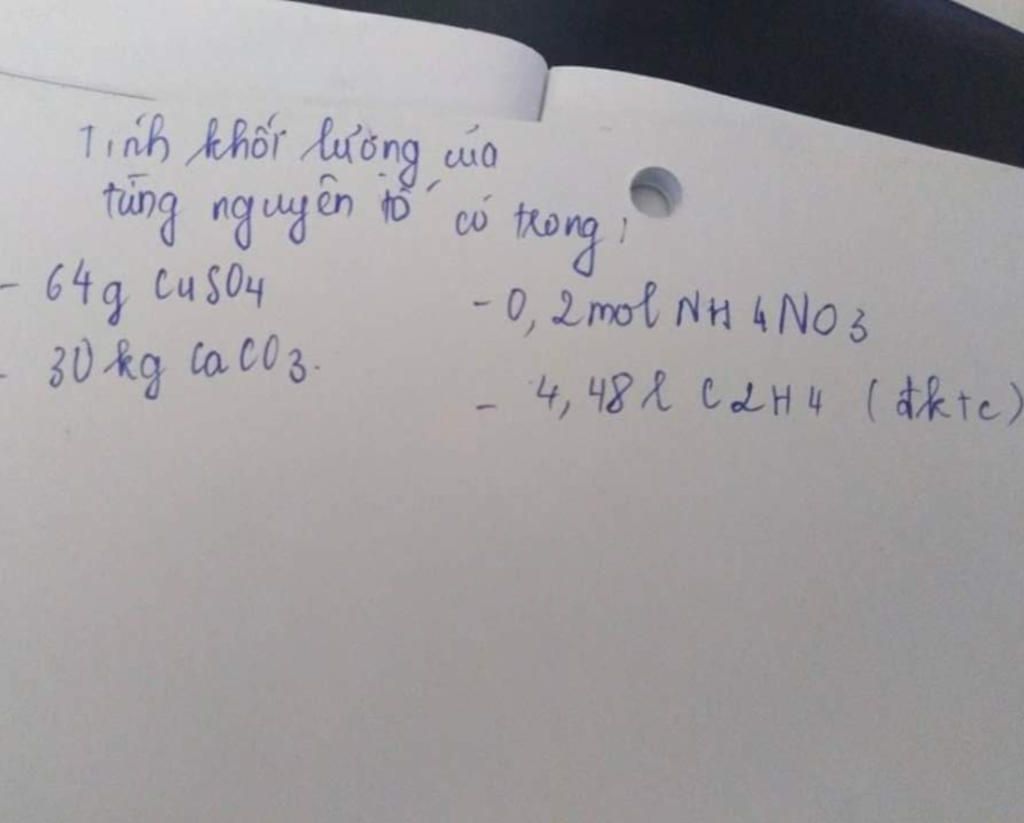 Tính khối lượng của
từng nguyên tố có trong;
- 64g CuSO4
- 30kg CaCO3.
- 0,2mol NH4NO3
- 4,48l C2H4 (đktc)